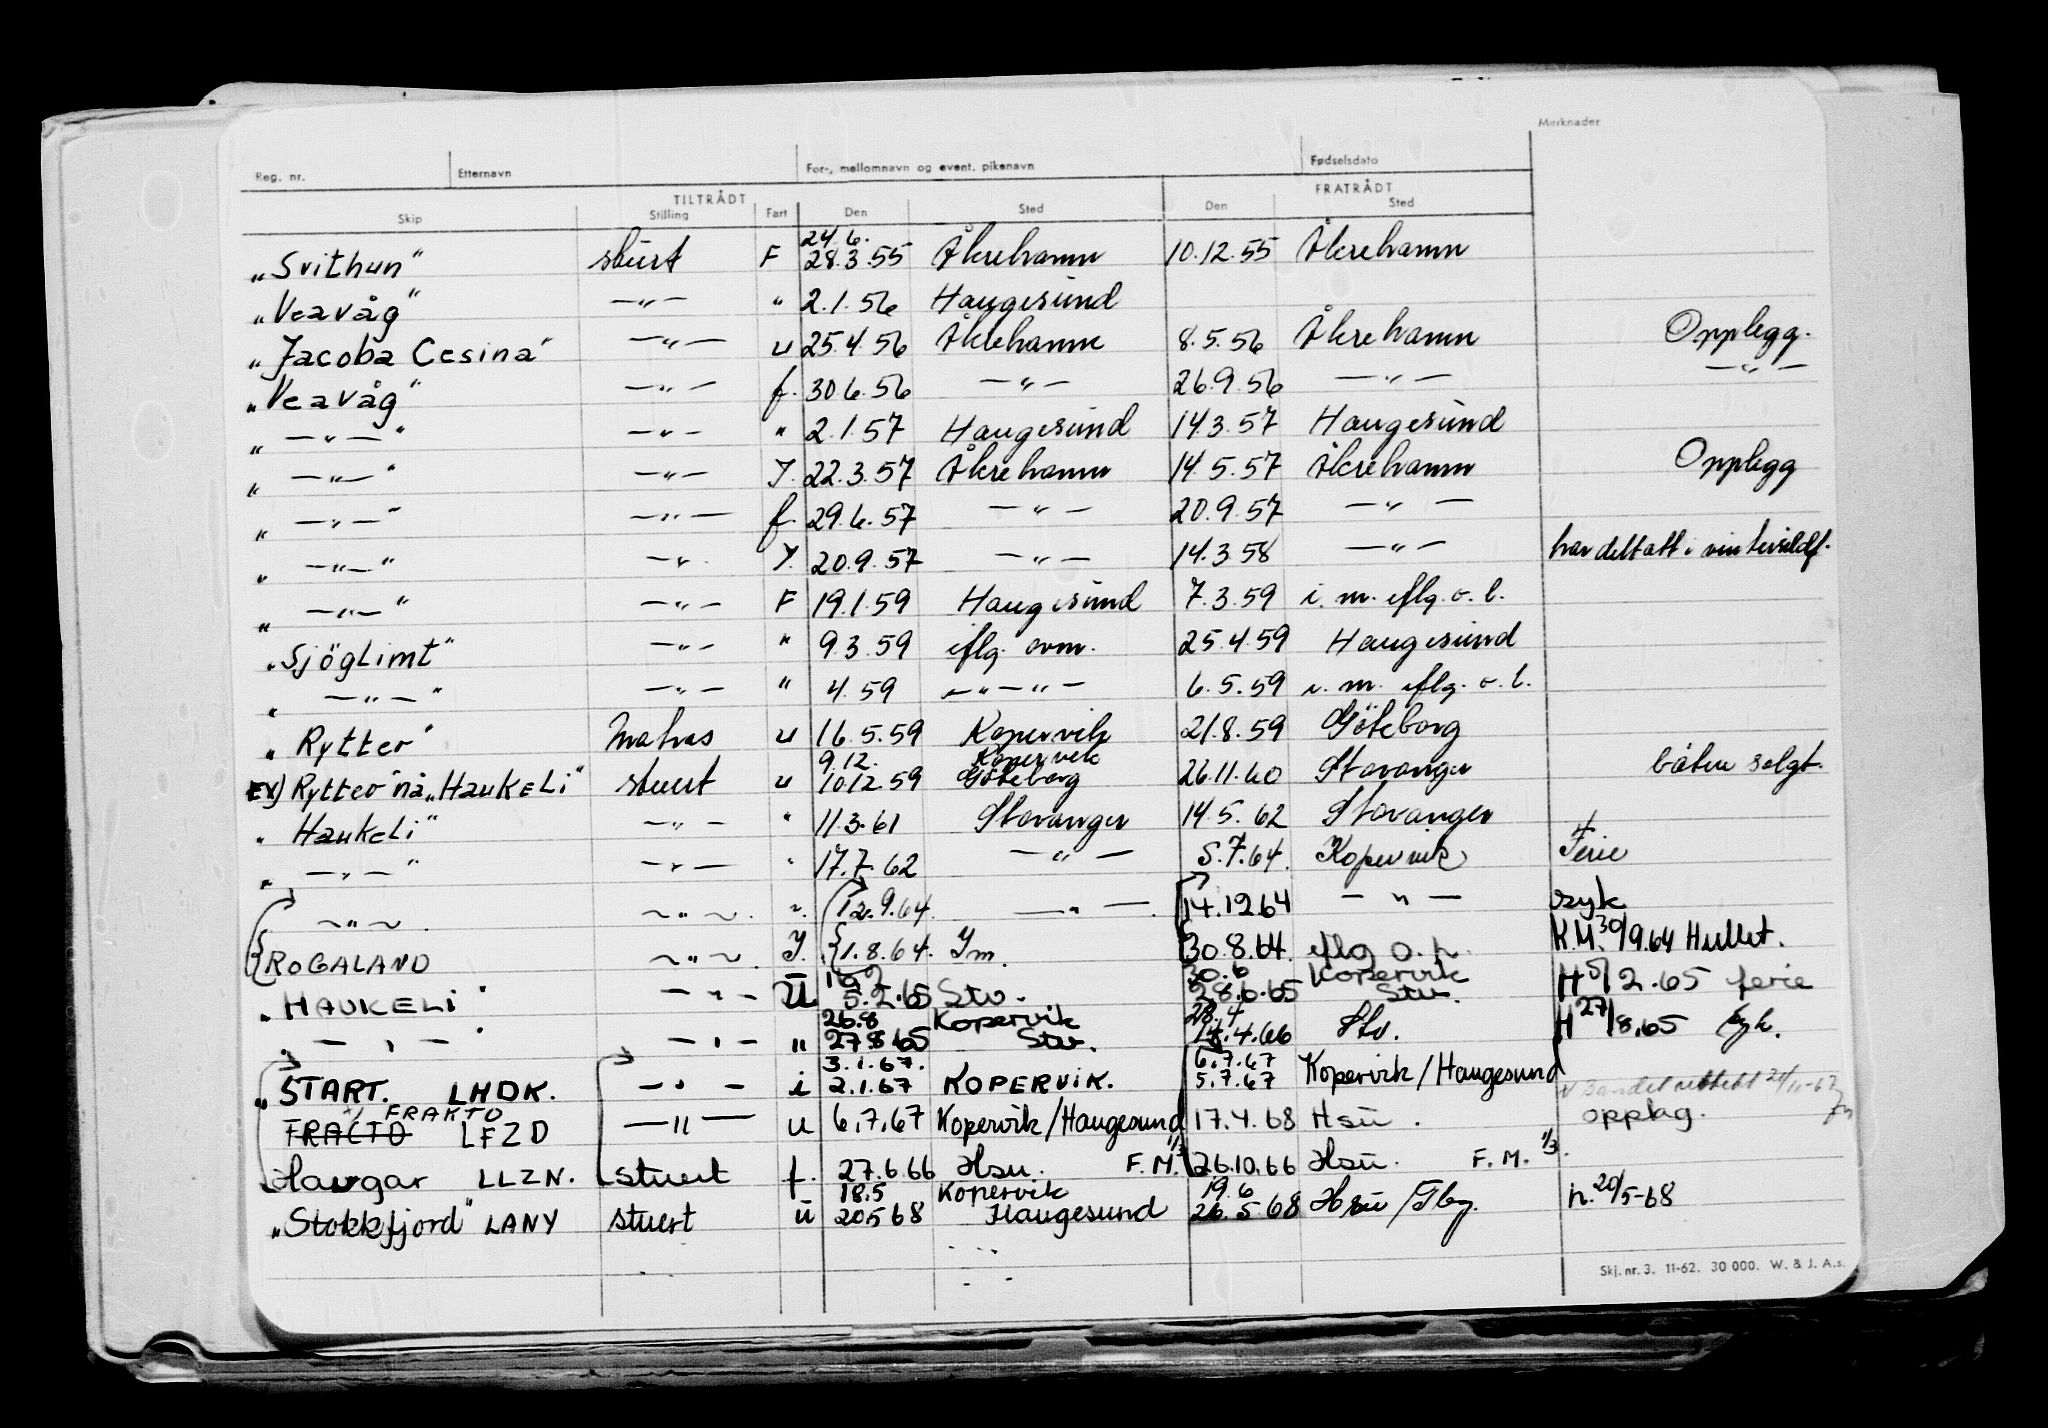 Merknader
Reg. nr. Etternavn For-, mellomnavn og event. pikenavn Fødselsdato
TILTRÅDT FRATRÅDT
Skip Stilling Fart Den Sted Den Sted
24.6.
„Svithun" stuert F 28.3.55 Åkrehamn 10.12.55 Åkrehamn
„Veavåg" —"— " 2.1.56 Haugesund
„Jacoba Cesina" —"— u 25.4.56 Åkrehamn 8.5.56 Åkrehamn Opplegg.
„Veavåg" —"— f. 30.6.56 —"— 26.9.56 —"— —"—
„—"—" —"— " 2.1.57 Haugesund 14.3.57 Haugesund
„—"—" —"— I. 22.3.57 Åkrehamn 14.5.57 Åkrehamn Opplegg
„—"—" —"— f. 29.6.57 —"— 20.9.57 —"—
„—"—" —"— I. 20.9.57 —"— 14.3.58 —"— har deltatt i vintersildf.
„—"—" —"— F 19.1.59 Haugesund 7.3.59 i.m. iflg. o.l.
„Sjöglimt" —"— " 9.3.59 iflg. ovm. 25.4.59 Haugesund
„—"—" —"— " 4.59 —"—"— 6.5.59 i.m. iflg. o.l.
„Rytter" Matros u 16.5.59 Kopervik 21.8.59 Göteborg
9.12. Kopervik
EX) Rytter" nå „HaukeLi" stuert u 10.12.59 Göteborg 26.11.60 Stavanger båten solgt.
„HaukeLi" —"— " 11.3.61 Stavanger 14.5.62 Stavanger
„—"—" —"— " 17.7.62 —"— 5.7.64. Kopervik Ferie
—"— —"— ". 12.9.64. —"— 14.12.64 —"— syk
ROGALAND —"— I. 1.8.64. Im. 30.8.64. iflg o. l. K.M. 30/9.64 Hullet.
30.6 Kopervik
„HAUKELI" —"— U 5.2.65 Stv. 28.6.65 Stv. H 5/2.65 ferie
26.8 Kopervik 28.4
„—"—" —"— " 27.8.65 Stv. 14.4.66 Stv. H 27/8.65 syk.
3.1.67. 6.7.67
„START. LHDK. —"— i 2.1.67 KOPERVIK. 5.7.67 Kopervik/Haugesund
FRAKTO
FRACTO LFZD —"— u 6.7.67 Kopervik/Haugesund 17.4.68 Hsu. opplag.
Havgar LLZN. stuert f. 27.6.66 Hsu. F.M. 1/3 26.10.66 Hsu. F.M. 1/3.
18.5 Kopervik 19.6
„Stokkfjord" LANY stuert u 20.5.68 Haugesund 26.5.68 Hsu/Tbg. h. 20/5-68
Skj. nr. 3. 11-62. 30 000. W. & J. A.s.